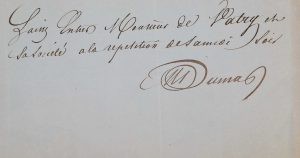 Laissez Entrer Monsieur de Valry et
sa société a la repetition de Samedi soir
Dumas